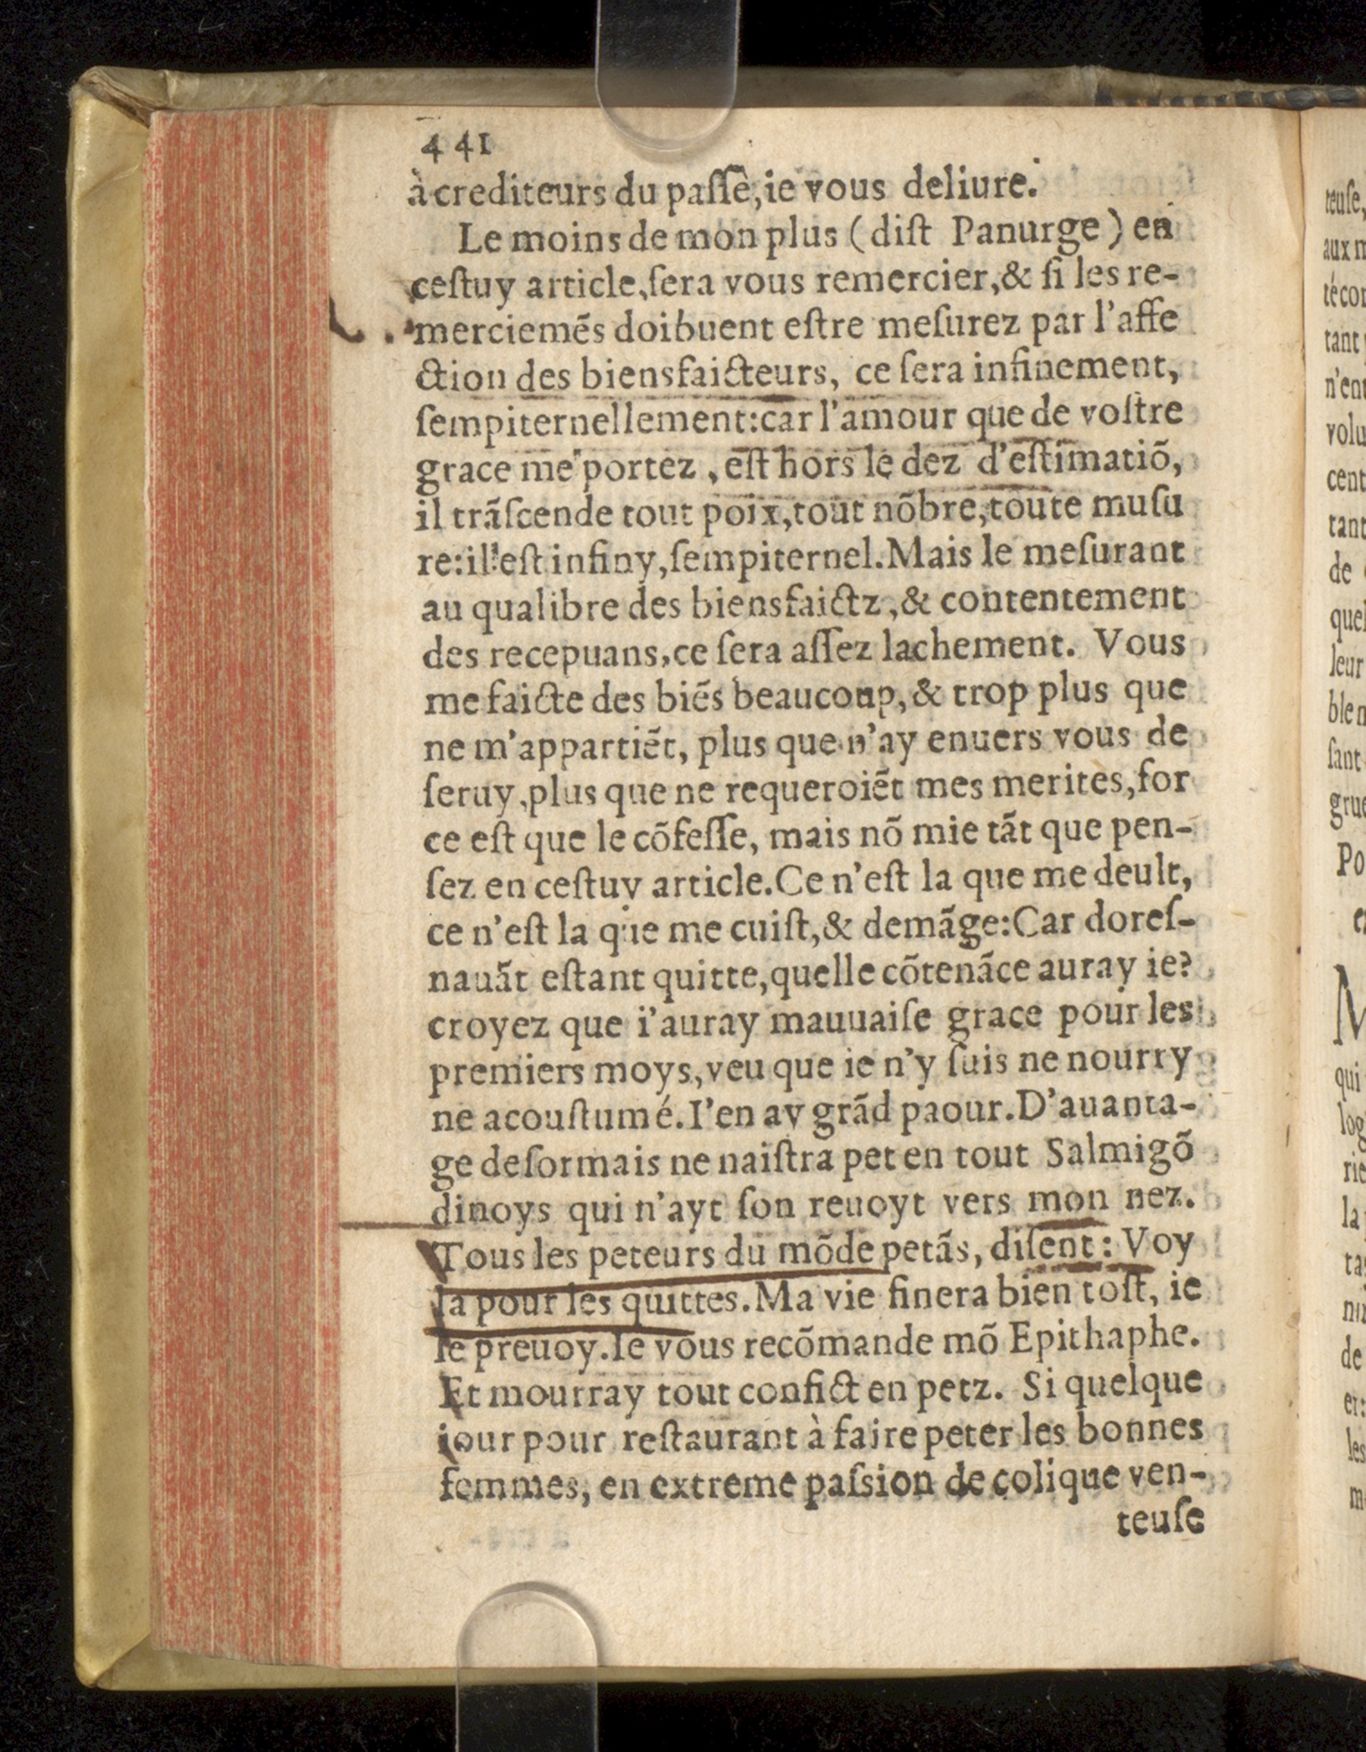 441
à crediteurs du paſſè, ie vous deliure.
Le moins de mon plus (diſt Panurge) en
ceſtuy article, ſera vous remercier, & ſi les re-
merciemẽs doibuent eſtre meſurez par l'affe
ction des biensfaicteurs, ce ſera infinement,
ſempiternellement: car l'amour que de voſtre
grace me portez, eſt hors le dez d'eſtimatiõ,
il trãſcende tout poix, tout nõbre, toute muſu
re: il eſt infiny, ſempiternel. Mais le meſurant
au qualibre des biensfaictz, & contentement
des recepuans, ce ſera aſſez lachement. Vous
me faicte des biẽs beaucoup, & trop plus que
ne m'appartiẽt, plus que n'ay enuers vous de
ſeruy, plus que ne requeroiẽt mes merites, for
ce eſt que le cõfeſſe, mais nõ mie tãt que pen-
ſez en ceſtuy article. Ce n'eſt la que me deult,
ce n'eſt la que me cuiſt, & demãge: Car doreſ-
nauãt eſtant quitte, quelle cõtenãce auray ie?
croyez que i'auray mauuaiſe grace pour les
premiers moys, veu que ie n'y ſuis ne nourry
ne acouſtumé. I'en ay grãd paour. D'auanta-
ge deſormais ne naiſtra pet en tout Salmigõ
dinoys qui n'ayt ſon reuoyt vers mon nez.
Tous les peteurs du mõde petãs, diſent: Voy
la pour les quittes. Ma vie finera bien toſt, ie
le preuoy. Ie vous recõmande mõ Epithaphe.
Et mourray tout confict en petz. Si quelque
iour pour reſtaurant à faire peter les bonnes
femmes, en extreme paſsion de colique ven-
teuſe
teuſe,
tant
n'en
volu
cent
tant
de
quel
leur
ſant
grue
Po
M
qui
log
rie
la
de
les